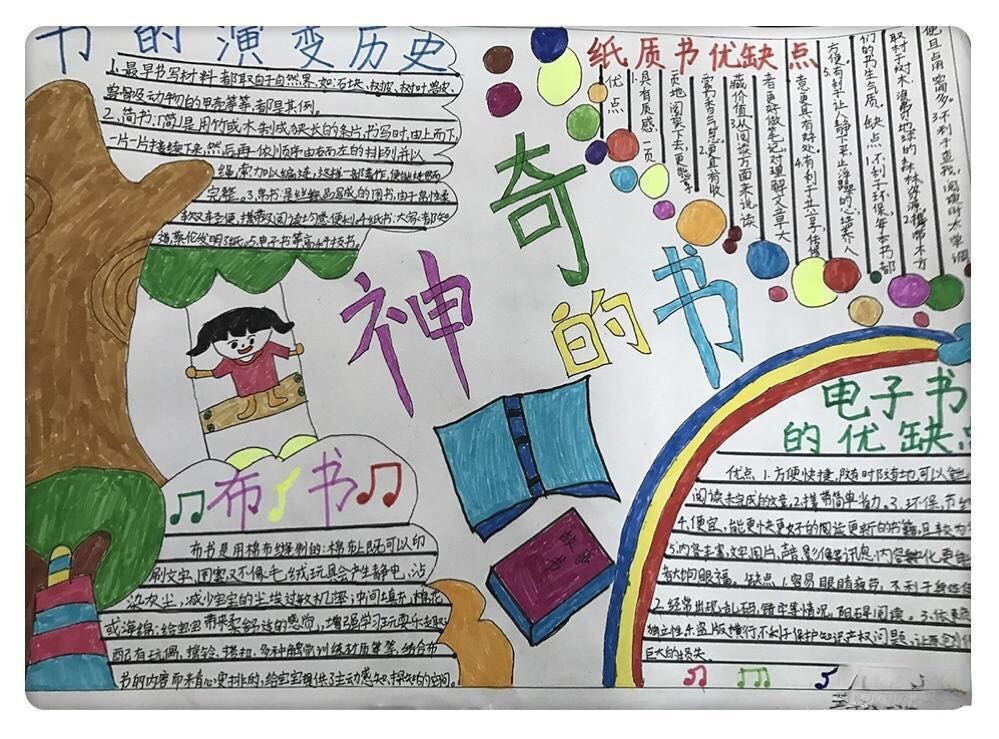 书的演变历史
1.最早书写材料都取自于自然界,如石块、树皮、树叶兽皮、
兽骨及动物的甲壳等等,都是其例。
2.简书:简是用竹或木制成狭长的条片,书写时,由上而下,
一片一片接续下来,然后再一依顺序由右而左的排列并以
绳索加以编连,
完整。3.帛书:是丝织品写成的图书,由于帛性柔
软又轻便,携带及阅读均感便利。4.纸书:大家都知
道蔡伦发明了纸。5.电子书等高科技书。
纸质书优缺点
优点
1.具有质感,一页
页地阅读下去,更能享
受书香气息更具有收
藏价值3.从阅读方面来说,读
者更好做笔记,对理解文章大
意更具有好处。4.有利于共分享传播
方便5.有利于让人静下来,止浮躁的心,培养人
们的书生气质。缺点:1.不利于环保,本书都
取材于树木,浪费地球的森林资源2.携带不方
便且占用需多。3.不利于查找,阅读时太单调
神奇的书
布书
布书是用棉布缝制的:棉布上既可以印
刷文字、图案,又不像毛绒玩具会产生静电,沾
染灰尘,减少宝宝的尘埃过敏机率;中间填充棉花
或海绵:给宝宝带来柔舒适的感觉,增强学习玩耍乐趣
配有玩偶、摇铃、搭扣、多种触觉训练材质等等,结合布
书的内容而来精心安排的,给宝宝提供了主动感知、探知的空间。
电子书
的优缺点
优点 1.方便快捷,随时随地可以
阅读未完成的文章,2.携带简单省力,3.环保,节
4.便宜,能更快更好的阅读更新的书籍,且较为
5.内容丰富,文字图片,声音,影像等讯息,内容
者大饱眼福。缺点:1.容易眼睛疲劳,不利于身体
2.经常出现乱码,错字等情况,阻碍阅读。3.依赖
独立性未盗版横行不利于保护知识产权问题,让
巨大的损失